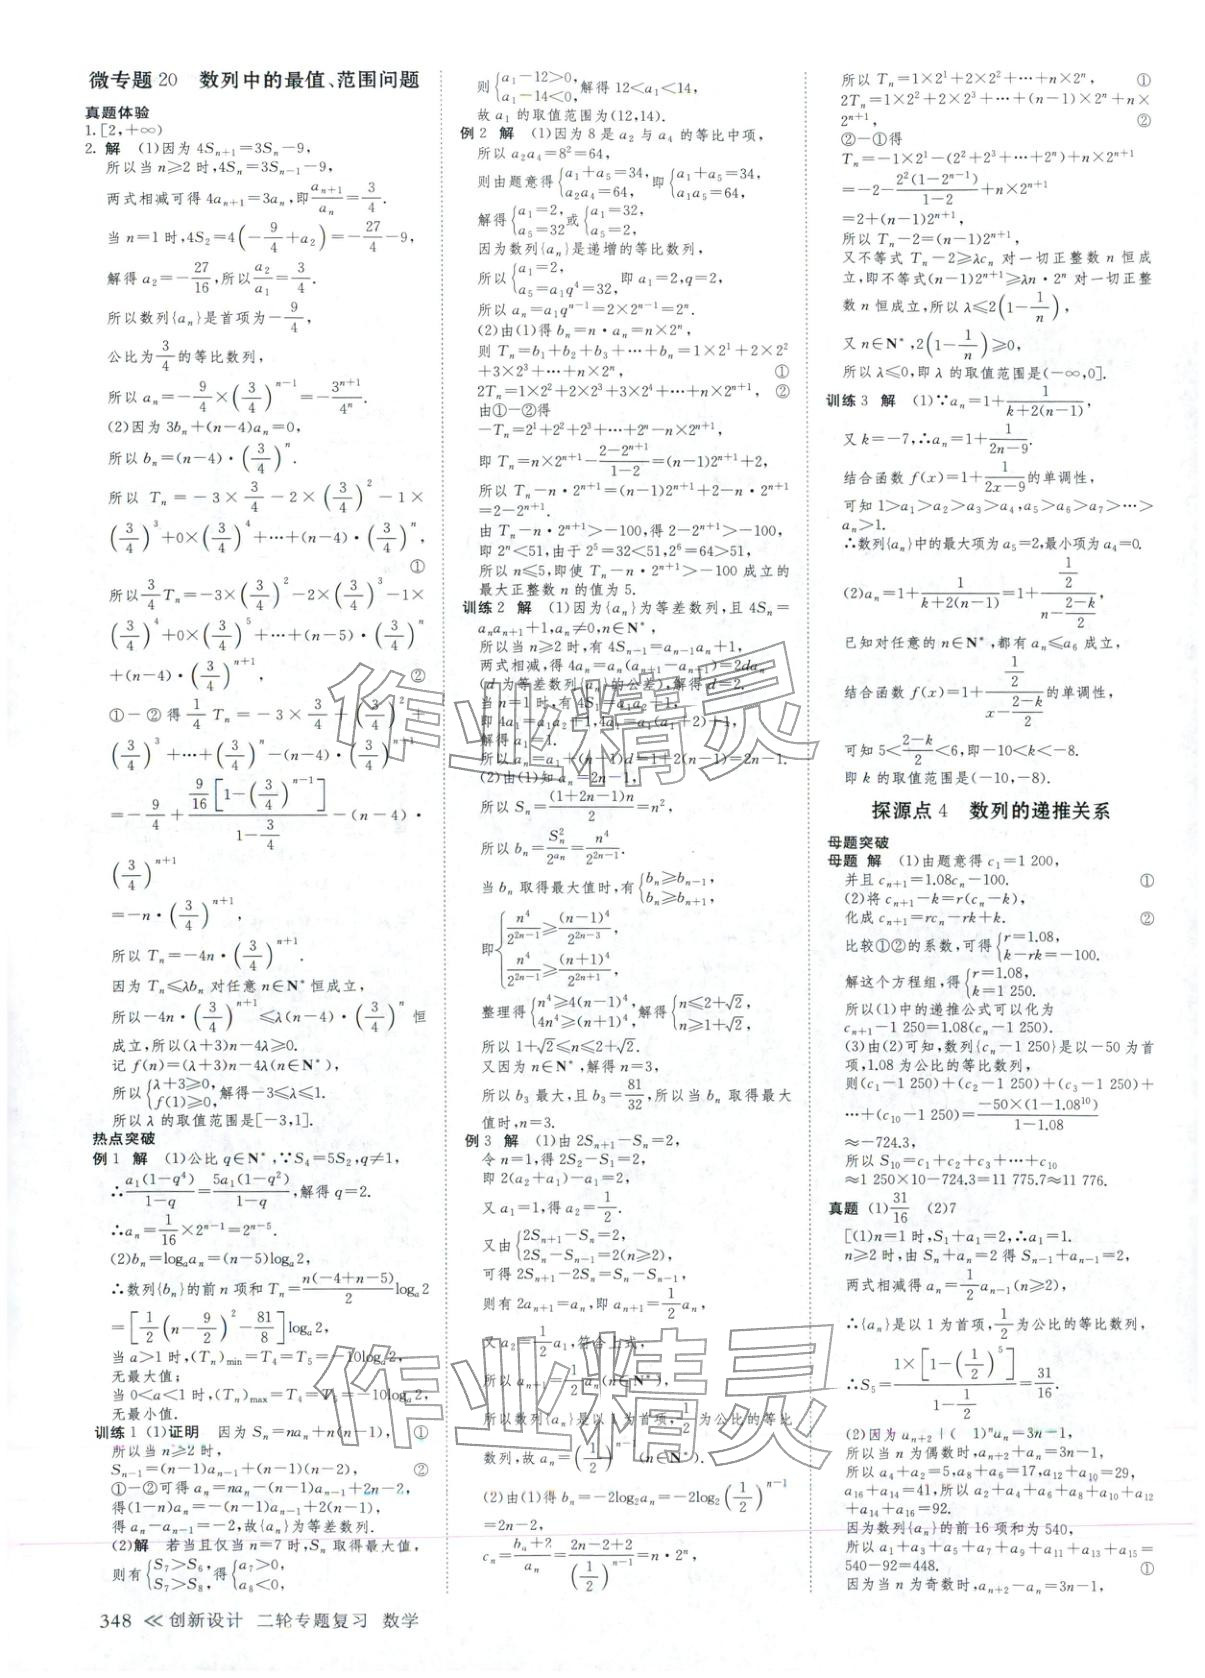 微专题 20 数列中的最值、范围问题
真题体验
1.[2,+∞)
2.解 (1)因为 4Sₙ₊₁=3Sₙ-9,
所以当 n≥2 时,4Sₙ=3Sₙ₋₁-9,
两式相减可得 4aₙ₊₁=3aₙ,即aₙ₊₁/aₙ=3/4.
当 n=1 时,4S₂=4(-9/4+a₂)=-27/4-9,
解得 a₂=-27/16,所以a₂/a₁=3/4.
所以数列{aₙ}是首项为-9/4,
公比为3/4的等比数列,
所以 aₙ=-9/4×(3/4)^(n-1)=-3^(n+1)/4^n.
(2)因为 3bₙ+(n-4)aₙ=0,
所以 bₙ=(n-4)·(3/4)^n.
所以 Tₙ=-3×3/4-2×(3/4)^2-1×
(3/4)^3+0×(3/4)^4+…+(n-4)·(3/4)^n,
①
所以3/4Tₙ=-3×(3/4)^2-2×(3/4)^3-1×
(3/4)^4+0×(3/4)^5+…+(n-5)·(3/4)^n
+(n-4)·(3/4)^(n+1), ②
①-②得1/4Tₙ=-3×3/4+(3/4)^2+
(3/4)^3+…+(3/4)^n-(n-4)·(3/4)^(n+1)
=-9/4+9/16[1-(3/4)^(n-1)]/(1-3/4)-(n-4)·
(3/4)^(n+1)
=-n·(3/4)^(n+1),
所以 Tₙ=-4n·(3/4)^(n+1).
因为 Tₙ≤λbₙ 对任意 n∈N*恒成立,
所以-4n·(3/4)^(n+1)≤λ(n-4)·(3/4)^n恒
成立,所以(λ+3)n-4λ≥0.
记 f(n)=(λ+3)n-4λ(n∈N*),
所以{λ+3≥0, f(1)≥0,解得-3≤λ≤1.
所以 λ 的取值范围是[-3,1].
热点突破
例 1 解 (1)公比 q∈N*,∵S₄=5S₂,q≠1,
∴a₁(1-q⁴)/(1-q)=5a₁(1-q²)/(1-q),解得 q=2.
∴aₙ=1/16×2^(n-1)=2^(n-5).
(2)bₙ=logₐaₙ=(n-5)logₐ2,
∴数列{bₙ}的前 n 项和 Tₙ=n(-4+n-5)/2 logₐ2
=[1/2(n-9/2)^2-81/8]logₐ2,
当 a>1 时,(Tₙ)min=T₄=T₅=-10logₐ2,
无最大值;
当 0<a<1 时,(Tₙ)max=T₄=T₅=-10logₐ2,
无最小值.
训练 1 (1)证明 因为 Sₙ=naₙ+n(n-1), ①
所以当 n≥2 时,
Sₙ₋₁=(n-1)aₙ₋₁+(n-1)(n-2), ②
①-②可得 aₙ=naₙ-(n-1)aₙ₋₁+2n-2,
得(1-n)aₙ=-(n-1)aₙ₋₁+2(n-1),
得 aₙ-aₙ₋₁=-2,故{aₙ}为等差数列.
(2)解 若当且仅当 n=7 时,Sₙ 取得最大值,
则有{S₇>S₆, S₇>S₈,得{a₇>0, a₈<0,
则{a₁-12>0, a₁-14<0,解得 12<a₁<14,
故 a₁ 的取值范围为(12,14).
例 2 解 (1)因为 8 是 a₂ 与 a₄ 的等比中项,
所以 a₂a₄=8²=64,
则由题意得{a₁+a₅=34, a₂a₄=64,即{a₁+a₅=34, a₁a₅=64,
解得{a₁=2, a₅=32或{a₁=32, a₅=2.
因为数列{aₙ}是递增的等比数列,
所以{a₁=2, a₅=a₁q⁴=32, 即 a₁=2,q=2,
所以 aₙ=a₁q^(n-1)=2×2^(n-1)=2^n.
(2)由(1)得 bₙ=n·aₙ=n×2^n,
则 Tₙ=b₁+b₂+b₃+…+bₙ=1×2¹+2×2²
+3×2³+…+n×2^n, ①
2Tₙ=1×2²+2×2³+3×2⁴+…+n×2^(n+1), ②
由①-②得
-Tₙ=2¹+2²+2³+…+2^n-n×2^(n+1),
即 Tₙ=n×2^(n+1)-(2-2^(n+1))/(1-2)=(n-1)2^(n+1)+2,
所以 Tₙ-n·2^(n+1)=(n-1)2^(n+1)+2-n·2^(n+1)
=2-2^(n+1).
由 Tₙ-n·2^(n+1)>-100,得 2-2^(n+1)>-100,
即 2^n<51,由于 2⁵=32<51,2⁶=64>51,
所以 n≤5,即使 Tₙ-n·2^(n+1)>-100 成立的
最大正整数 n 的值为 5.
训练 2 解 (1)因为{aₙ}为等差数列,且 4Sₙ=
aₙaₙ₊₁+1,aₙ≠0,n∈N*,
所以当 n≥2 时,有 4Sₙ₋₁=aₙ₋₁aₙ+1,
两式相减,得 4aₙ=aₙ(aₙ₊₁-aₙ₋₁)=2daₙ
(d 为等差数列{aₙ}的公差),解得 d=2.
当 n=1 时,有 4S₁=a₁a₂+1,
即 4a₁=a₁a₂+1,4a₁=a₁(a₁+2)+1,
解得 a₁=1.
所以 aₙ=a₁+(n-1)d=1+2(n-1)=2n-1.
(2)由(1)知 aₙ=2n-1,
所以 Sₙ=(1+2n-1)n/2=n²,
所以 bₙ=Sₙ²/2^aₙ=n⁴/2^(2n-1).
当 bₙ 取得最大值时,有{bₙ≥bₙ₋₁, bₙ≥bₙ₊₁,
即{n⁴/2^(2n-1)≥(n-1)⁴/2^(2n-3), n⁴/2^(2n-1)≥(n+1)⁴/2^(2n+1),
整理得{n⁴≥4(n-1)⁴, 4n⁴≥(n+1)⁴,解得{n≤2+√2, n≥1+√2,
所以 1+√2≤n≤2+√2.
又因为 n∈N*,解得 n=3,
所以 b₃ 最大,且 b₃=81/32,所以当 bₙ 取得最大
值时,n=3.
例 3 解 (1)由 2Sₙ₊₁-Sₙ=2,
令 n=1,得 2S₂-S₁=2,
即 2(a₂+a₁)-a₁=2,
又 a₁=1,得 a₂=1/2.
又由{2Sₙ₊₁-Sₙ=2, 2Sₙ-Sₙ₋₁=2(n≥2),
可得 2Sₙ₊₁-2Sₙ=Sₙ-Sₙ₋₁,
则有 2aₙ₊₁=aₙ,即 aₙ₊₁=1/2aₙ,
又 a₂=1/2a₁,符合上式,
所以 aₙ₊₁=1/2aₙ(n∈N*).
所以数列{aₙ}是以 1 为首项,1/2为公比的等比
数列,故 aₙ=(1/2)^(n-1)(n∈N*).
(2)由(1)得 bₙ=-2log₂aₙ=-2log₂(1/2)^(n-1)
=2n-2,
cₙ=(bₙ+2)/aₙ=(2n-2+2)/(1/2)^(n-1)=n·2^n,
所以 Tₙ=1×2¹+2×2²+…+n×2^n, ①
2Tₙ=1×2²+2×2³+…+(n-1)×2^n+n×
2^(n+1), ②
②-①得
Tₙ=-1×2¹-(2²+2³+…+2^n)+n×2^(n+1)
=-2-2²(1-2^(n-1))/(1-2)+n×2^(n+1)
=2+(n-1)2^(n+1),
所以 Tₙ-2=(n-1)2^(n+1),
又不等式 Tₙ-2≥λcₙ 对一切正整数 n 恒成
立,即不等式(n-1)2^(n+1)≥λn·2^n 对一切正整
数 n 恒成立,所以 λ≤2(1-1/n),
又 n∈N*,2(1-1/n)≥0,
所以 λ≤0,即 λ 的取值范围是(-∞,0].
训练 3 解 (1)∵aₙ=1+1/(k+2(n-1)),
又 k=-7,∴aₙ=1+1/(2n-9).
结合函数 f(x)=1+1/(2x-9)的单调性,
可知 1>a₁>a₂>a₃>a₄,a₅>a₆>a₇>…>
aₙ>1.
∴数列{aₙ}中的最大项为 a₅=2,最小项为 a₄=0.
(2)aₙ=1+1/(k+2(n-1))=1+(1/2)/(n-(2-k)/2)
已知对任意的 n∈N*,都有 aₙ≤a₆ 成立,
结合函数 f(x)=1+(1/2)/(x-(2-k)/2)的单调性,
可知 5<(2-k)/2<6,即-10<k<-8.
即 k 的取值范围是(-10,-8).
探源点 4 数列的递推关系
母题突破
母题 解 (1)由题意得 c₁=1 200,
并且 cₙ₊₁=1.08cₙ-100. ①
(2)将 cₙ₊₁-k=r(cₙ-k),
化成 cₙ₊₁=rcₙ-rk+k. ②
比较①②的系数,可得{r=1.08, k-rk=-100.
解这个方程组,得{r=1.08, k=1 250.
所以(1)中的递推公式可以化为
cₙ₊₁-1 250=1.08(cₙ-1 250).
(3)由(2)可知,数列{cₙ-1 250}是以-50 为首
项,1.08为公比的等比数列,
则(c₁-1 250)+(c₂-1 250)+(c₃-1 250)+
…+(c₁₀-1 250)=-50×(1-1.08¹⁰)/(1-1.08)
≈-724.3,
所以 S₁₀=c₁+c₂+c₃+…+c₁₀
≈1 250×10-724.3=11 775.7≈11 776.
真题 (1)31/16 (2)7
[(1)n=1 时,S₁+a₁=2,∴a₁=1.
n≥2 时,由 Sₙ+aₙ=2 得 Sₙ₋₁+aₙ₋₁=2,
两式相减得 aₙ=1/2aₙ₋₁(n≥2),
∴{aₙ}是以 1 为首项,1/2为公比的等比数列,
∴S₅=1×[1-(1/2)^5]/(1-1/2)=31/16.
(2)因为 aₙ₊₂+(-1)^n aₙ=3n-1,
所以当 n 为偶数时,aₙ₊₂+aₙ=3n-1,
所以 a₄+a₂=5,a₈+a₆=17,a₁₂+a₁₀=29,
a₁₆+a₁₄=41,所以 a₂+a₄+a₆+a₈+a₁₀+a₁₂
+a₁₄+a₁₆=92.
因为数列{aₙ}的前 16 项和为 540,
所以 a₁+a₃+a₅+a₇+a₉+a₁₁+a₁₃+a₁₅=
540-92=448. ①
因为当 n 为奇数时,aₙ₊₂-aₙ=3n-1,
348 ≪ 创新设计 二轮专题复习 数学
作业精灵
作业精灵